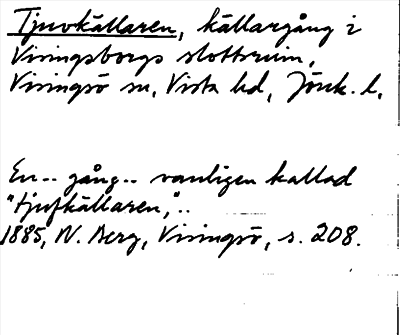 Tjuvkällaren, källargång i
Visingsborgs slottsruin,
Visingsö sn, Vista hd, Jönk. l.
En -- gång -- vanligen kallad
"tjufkällaren," --
1885, W. Berg, Visingsö, s. 208.